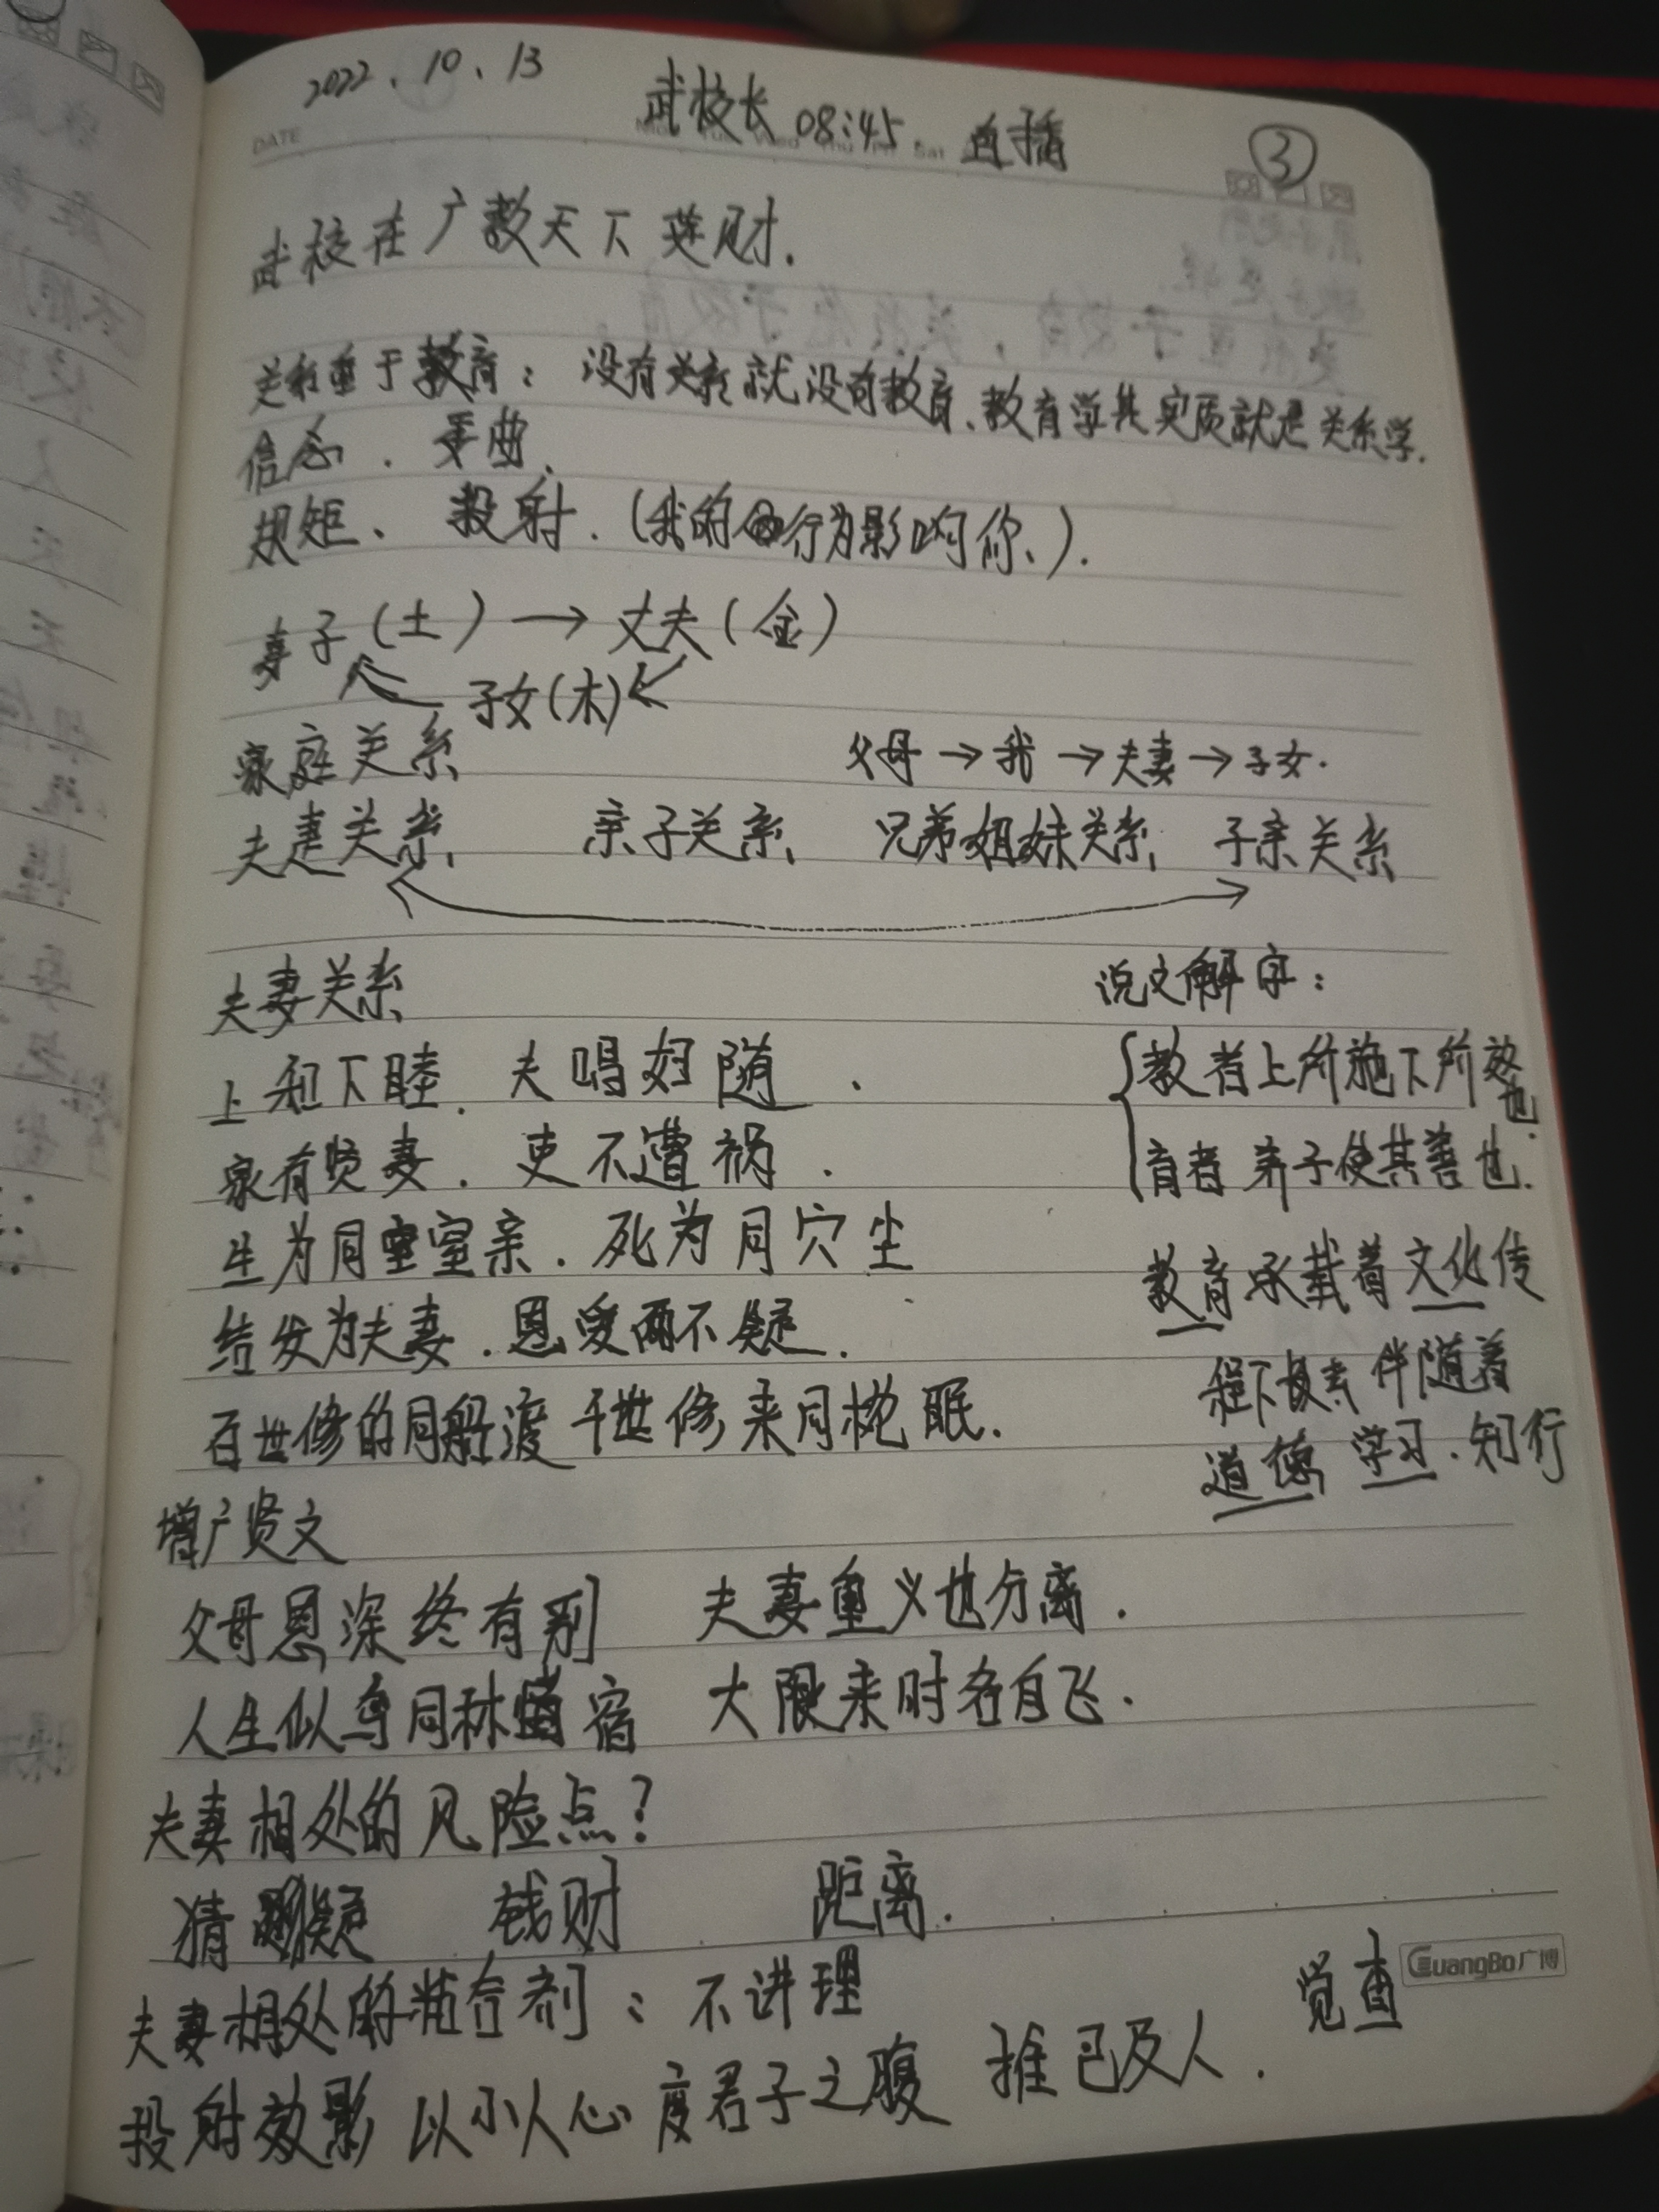 2022.10.13
武校长 08:45 直播
③
DATE
Mon Tue Wed Thu Fri Sat
武校在广教天下英财.
关系重于教育: 没有关系就没有教育、教育学其实质就是关系学.
信念.
规矩、投射.(我的行为影响你、).
妻子(土)→丈夫(金)
子女(木)
家庭关系
父母→我→夫妻→子女.
夫妻关系、 亲子关系、 兄弟姐妹关系、 子亲关系
夫妻关系
上和下睦. 夫唱妇随.
家有贤妻. 吏不遭祸.
生为同室亲. 死为同穴尘
结发为夫妻.恩爱两不疑.
百世修的同船渡 千世修来同枕眠.
说文解字:
教者上所施下所效也.
育者 养子使其善也.
教育承载着文化传
伴随着
道德 学习.知行
增广贤文
父母恩深终有别 夫妻重义也分离.
人生似鸟同林宿 大限来时各自飞.
夫妻相处的风险点?
猜疑 钱财 距离.
夫妻相处的粘合剂: 不讲理
投射效影 以小人心度君子之腹 推己及人. 觉查
GuangBo广博